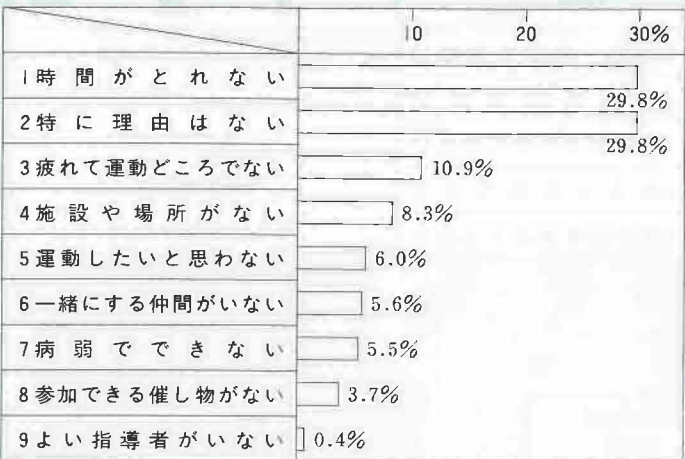 10 20 30%
1時間がとれない
29.8%
2特に理由はない
29.8%
3疲れて運動どころでない 10.9%
4施設や場所がない 8.3%
5運動したいと思わない 6.0%
6一緒にする仲間がいない 5.6%
7病弱でできない 5.5%
8参加できる催し物がない 3.7%
9よい指導者がいない 0.4%